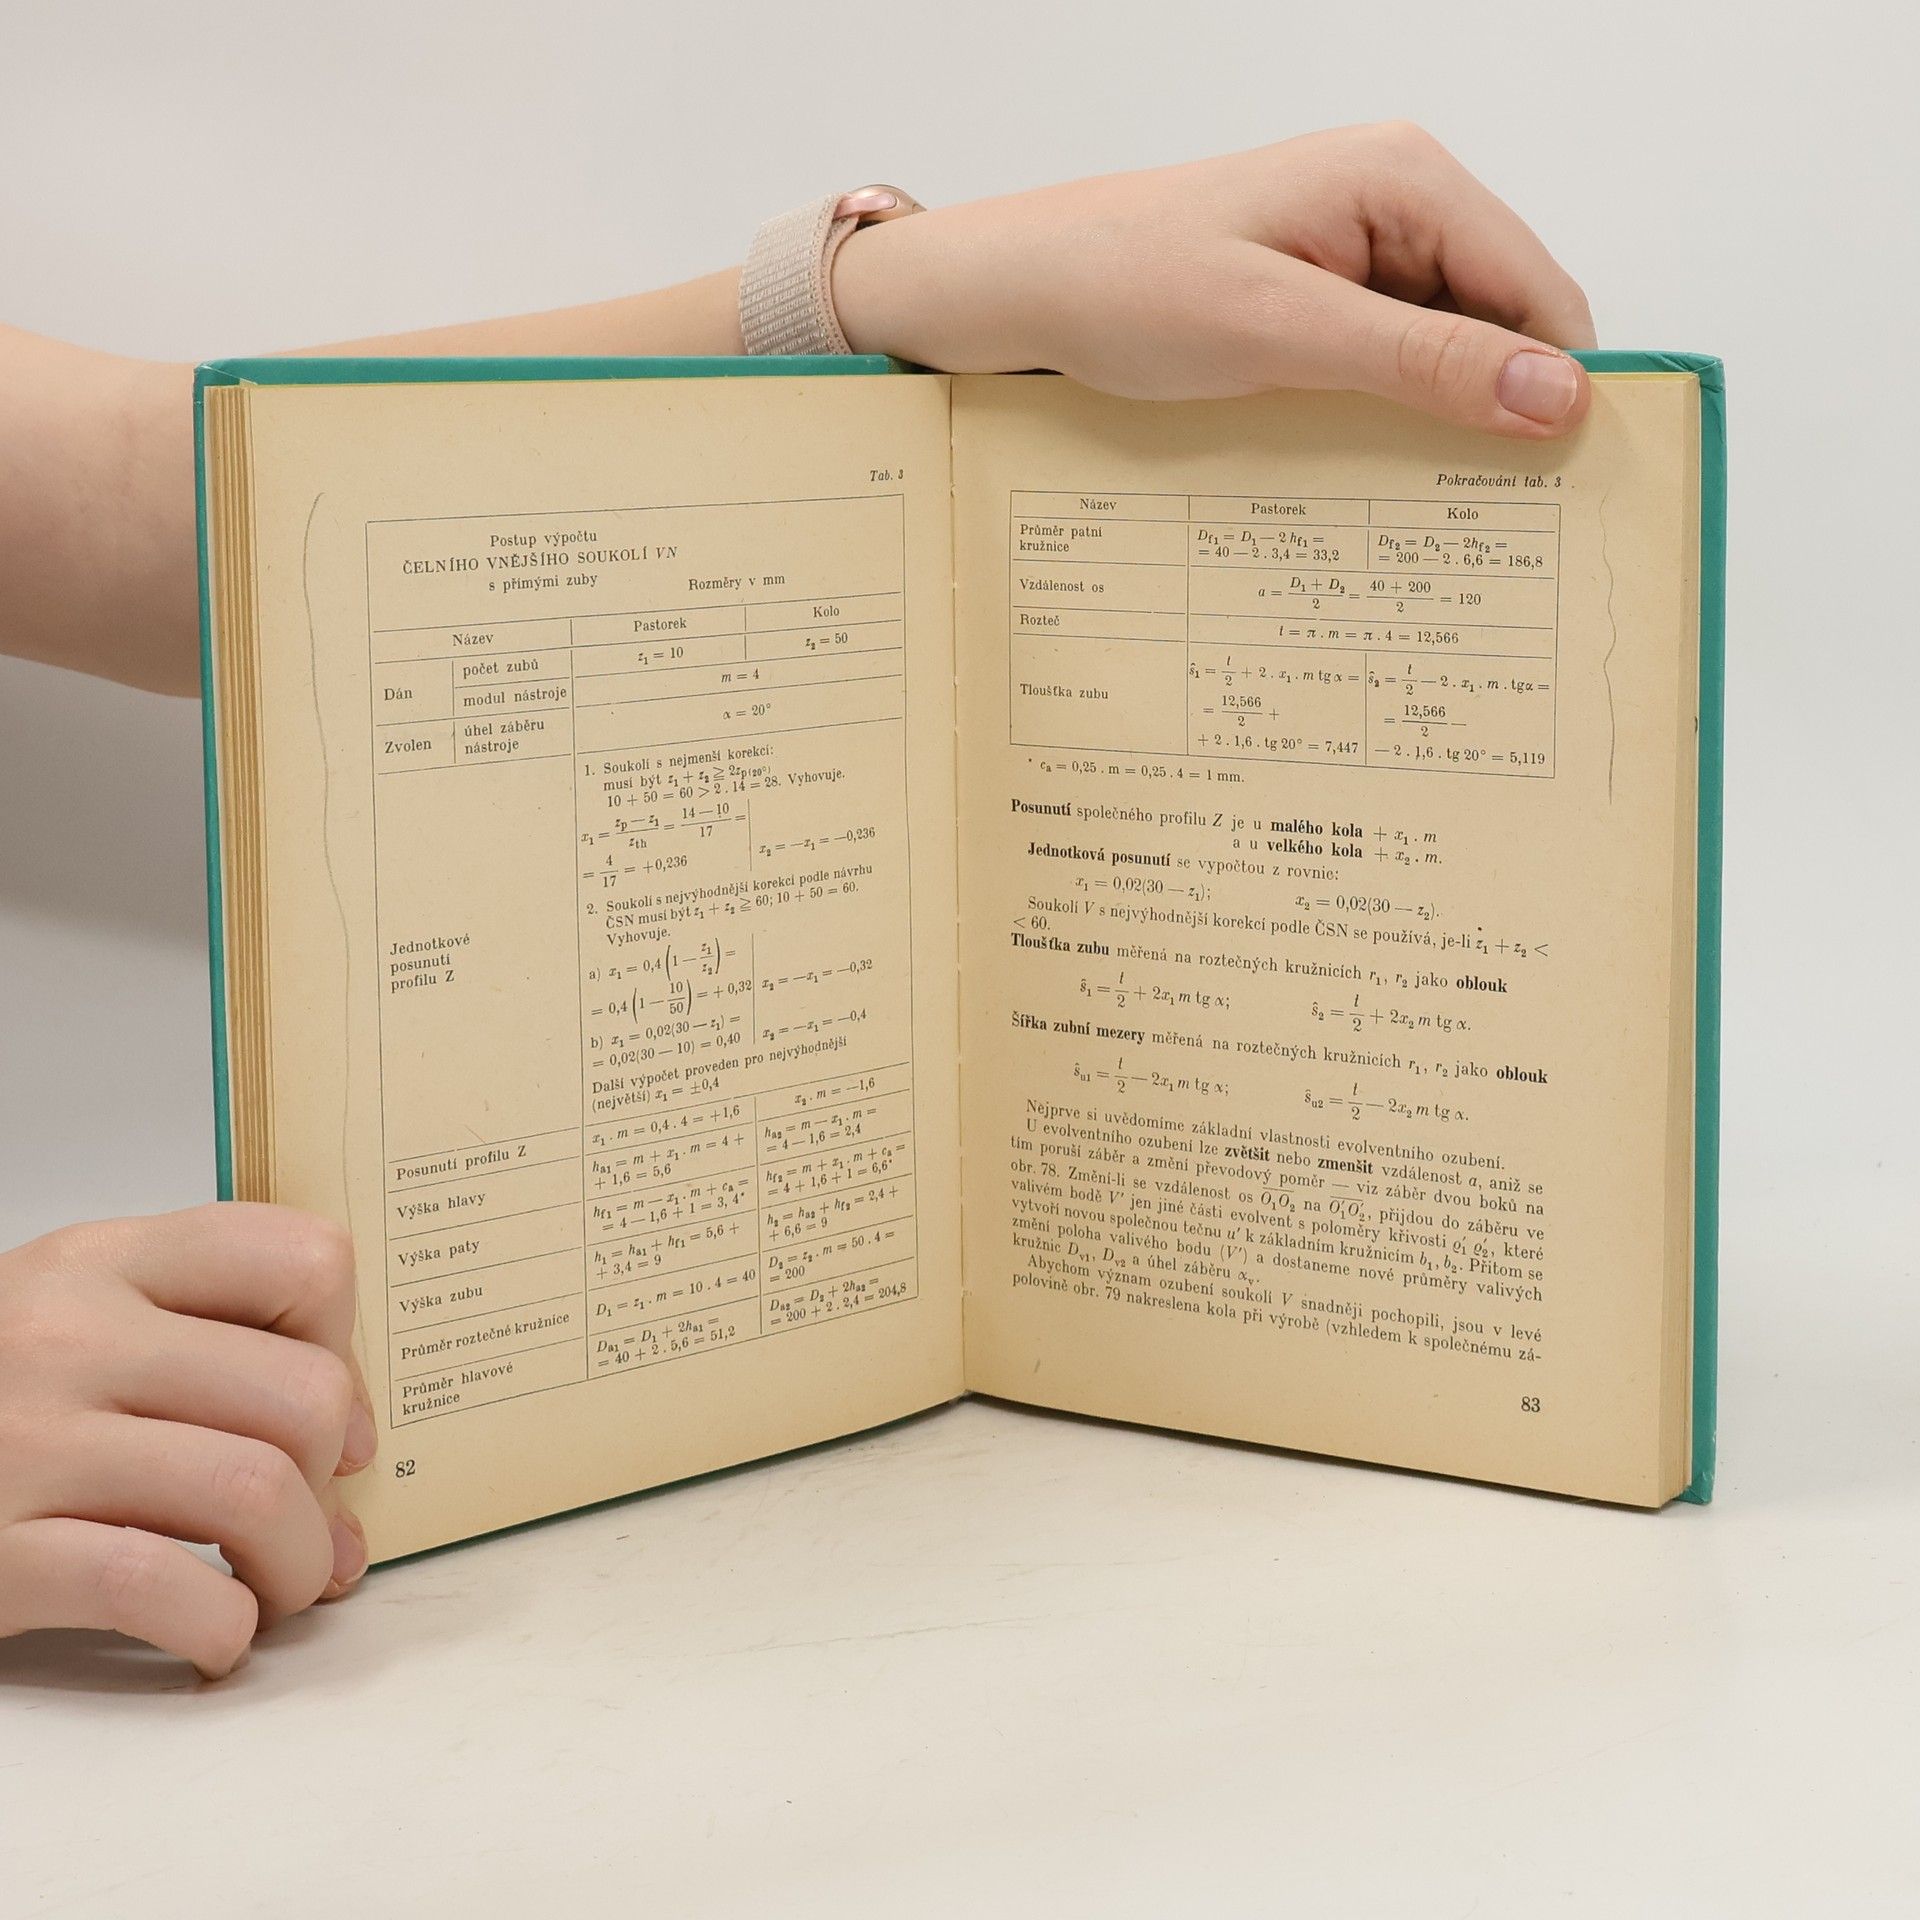 Tab. 3
Postup výpočtu
ČELNÍHO VNĚJŠÍHO SOUKOLÍ VN
s přímými zuby
Rozměry v mm
Název
Pastorek
Kolo
Dán
počet zubů
z₁ = 10
z₂ = 50
modul nástroje
m = 4
Zvolen
úhel záběru
nástroje
α = 20°
Jednotkové
posunutí
profilu Z
1. Soukolí s nejmenší korekcí:
musí být z₁ + z₂ ≧ 2zp(20°)
10 + 50 = 60 > 2 . 14 = 28. Vyhovuje.
x₁ = (zp — z₁)/zth = (14 — 10)/17 =
= 4/17 = +0,236
x₂ = —x₁ = —0,236
2. Soukolí s nejvýhodnější korekcí podle návrhu
ČSN musí být z₁ + z₂ ≧ 60; 10 + 50 = 60.
Vyhovuje.
a) x₁ = 0,4 (1 — z₁/z₂) =
= 0,4 (1 — 10/50) = + 0,32
x₂ = —x₁ = —0,32
b) x₁ = 0,02(30 — z₁) =
= 0,02(30 — 10) = 0,40
x₂ = —x₁ = —0,4
Další výpočet proveden pro nejvýhodnější
(největší) x₁ = ±0,4
Posunutí profilu Z
x₁ . m = 0,4 . 4 = +1,6
x₂ . m = —1,6
Výška hlavy
ha1 = m + x₁ . m = 4 +
+ 1,6 = 5,6
ha2 = m — x₁ . m =
= 4 — 1,6 = 2,4
Výška paty
hf1 = m — x₁ . m + ca =
= 4 — 1,6 + 1 = 3, 4*
hf2 = m + x₁ . m + ca =
= 4 + 1,6 + 1 = 6,6*
Výška zubu
h₁ = ha1 + hf1 = 5,6 +
+ 3,4 = 9
h₂ = ha2 + hf2 = 2,4 +
+ 6,6 = 9
Průměr roztečné kružnice
D₁ = z₁ . m = 10 . 4 = 40
D₂ = z₂ . m = 50 . 4 =
= 200
Průměr hlavové
kružnice
Da1 = D₁ + 2ha1 =
= 40 + 2 . 5,6 = 51,2
Da2 = D₂ + 2ha2 =
= 200 + 2 . 2,4 = 204,8
82
Pokračování tab. 3
Název
Pastorek
Kolo
Průměr patní
kružnice
Df1 = D₁ — 2 hf1 =
= 40 — 2 . 3,4 = 33,2
Df2 = D₂ — 2hf2 =
= 200 — 2 . 6,6 = 186,8
Vzdálenost os
a = (D₁ + D₂)/2 = (40 + 200)/2 = 120
Rozteč
t = π . m = π . 4 = 12,566
Tloušťka zubu
ŝ₁ = t/2 + 2 . x₁ . m tg α =
= 12,566/2 +
+ 2 . 1,6 . tg 20° = 7,447
ŝ₂ = t/2 — 2 . x₁ . m . tgα =
= 12,566/2 —
— 2 . 1,6 . tg 20° = 5,119
* ca = 0,25 . m = 0,25 . 4 = 1 mm.
Posunutí společného profilu Z je u malého kola + x₁ . m
a u velkého kola + x₂ . m.
Jednotková posunutí se vypočtou z rovnic:
x₁ = 0,02(30 — z₁); x₂ = 0,02(30 — z₂).
Soukolí V s nejvýhodnější korekcí podle ČSN se používá, je-li z₁ + z₂ <
< 60.
Tloušťka zubu měřená na roztečných kružnicích r₁, r₂ jako oblouk
ŝ₁ = t/2 + 2x₁ m tg α; ŝ₂ = t/2 + 2x₂ m tg α.
Šířka zubní mezery měřená na roztečných kružnicích r₁, r₂ jako oblouk
ŝu1 = t/2 — 2x₁ m tg α; ŝu2 = t/2 — 2x₂ m tg α.
Nejprve si uvědomíme základní vlastnosti evolventního ozubení.
U evolventního ozubení lze zvětšit nebo zmenšit vzdálenost a, aniž se
tím poruší záběr a změní převodový poměr — viz záběr dvou boků na
obr. 78. Změní-li se vzdálenost os O₁O₂ na O₁′O₂′, přijdou do záběru ve
valivém bodě V′ jen jiné části evolvent s poloměry křivosti ϱ₁′ ϱ₂′, které
vytvoří novou společnou tečnu u′ k základním kružnicím b₁, b₂. Přitom se
změní poloha valivého bodu (V′) a dostaneme nové průměry valivých
kružnic Dv1, Dv2 a úhel záběru αv.
Abychom význam ozubení soukolí V snadněji pochopili, jsou v levé
polovině obr. 79 nakreslena kola při výrobě (vzhledem k společnému zá-
83